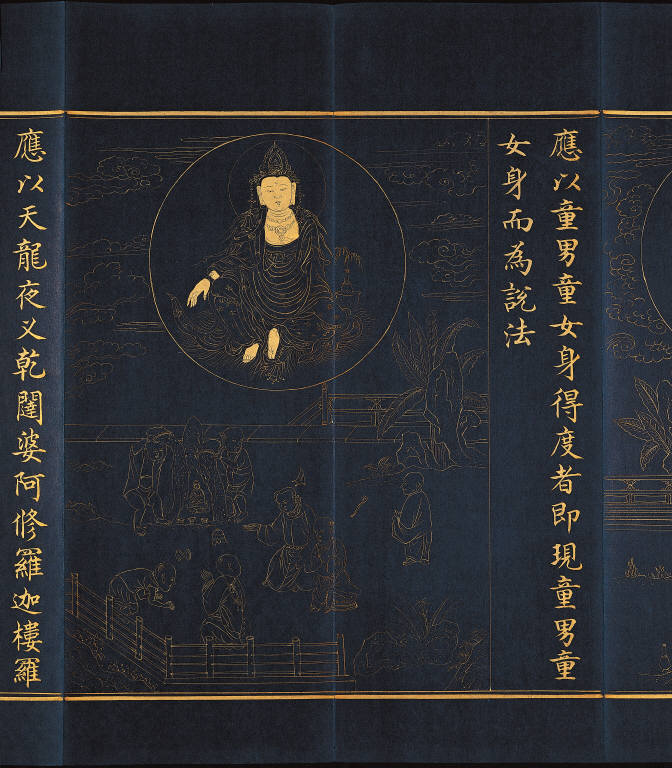 應以童男童女身得度者即現童男童
女身而為說法
應以天龍夜叉乾闥婆阿修羅迦樓羅